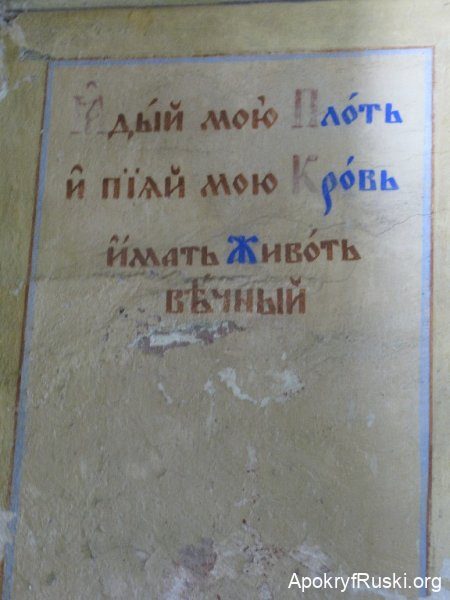 Ꙗ҆ды́й мою̀ Пло́ть
и҆ пїѧ́й мою Кро́вь
и҆́мать Живо́тъ
вѣ́чный
ApokryfRuski.org